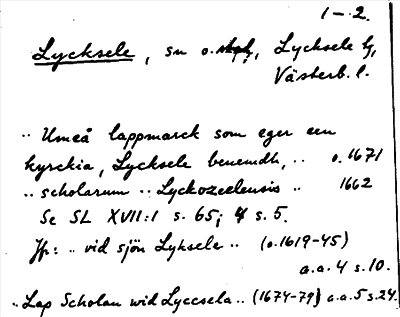 1–2.
Lycksele, sn o. Lycksele lj,
Västerb. l.
.. Umeå lappmarck som eger een
kyrckia, Lycksele benemdh, .. o. 1671
.. scholarum .. Lyckozeelensis .. 1662
Se SL XVII:1 s. 65; 4 s. 5.
Jfr: .. vid sjön Lyksele .. (o. 1619–45)
a.a. 4 s. 10.
.. Lap Scholan wid Lyccsela .. (1674–79) a.a. 5 s. 24.